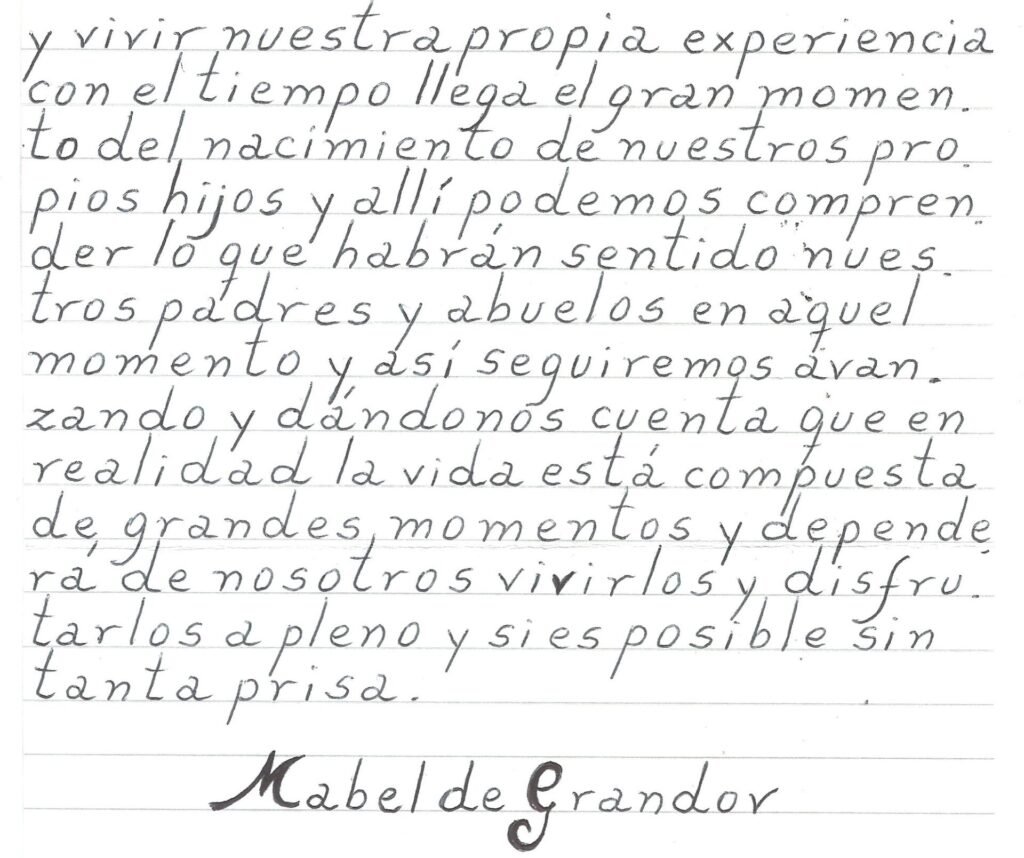 y vivir nuestra propia experiencia
con el tiempo llega el gran momen.
to del nacimiento de nuestros pro.
pios hijos y allí podemos compren.
der lo que habrán sentido nues.
tros padres y abuelos en aquel
momento y así seguiremos avan.
zando y dándonos cuenta que en
realidad la vida está compuesta
de grandes momentos y depende.
rá de nosotros vivirlos y disfru.
tarlos a pleno y si es posible sin
tanta prisa.
Mabel de Grandov